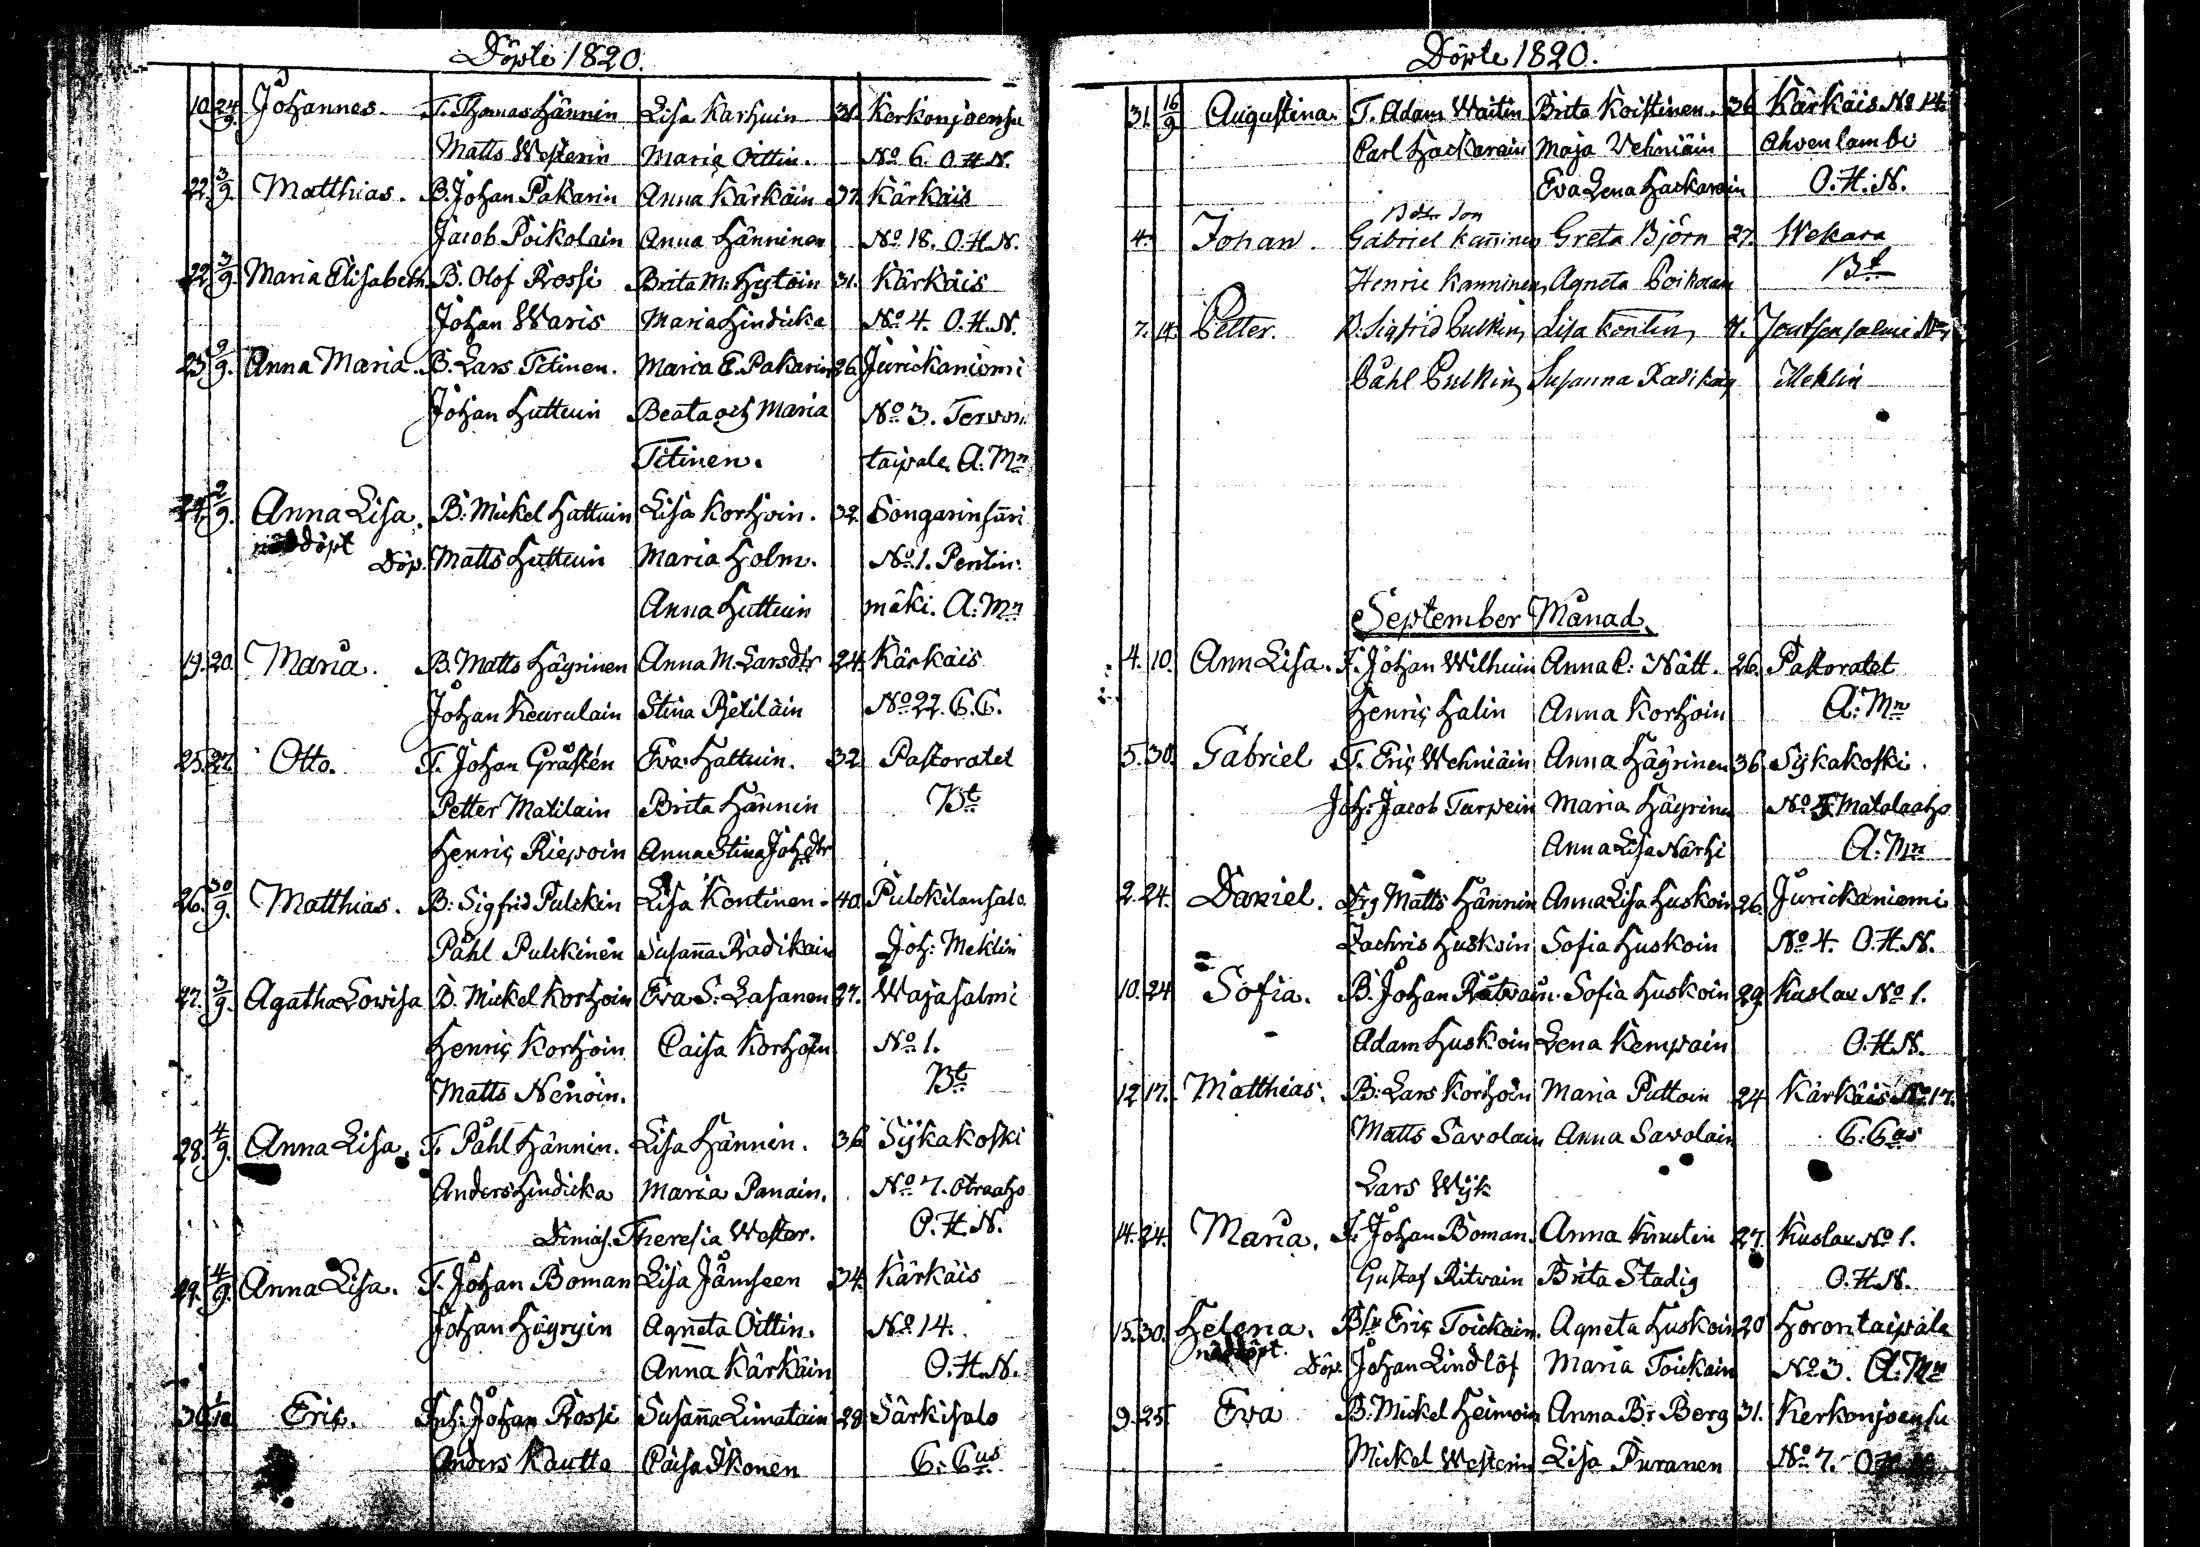 Döpte 1820.
10. 24/9. Johannes. T. Thomas Hännin Lisa Karhuin 31. Kerkonjoensu
Matts Westerin Maria Oittin. No 6. O.H.N.
22. 3/9. Matthias. B. Johan Pakarin Anna Kärkäin 37. Kärkäis
Jacob Poikolain Anna Hänninen No 18. O.H.N.
22. 3/9. Maria Elisabeth B. Olof Rossi Brita M: Hytöin 31. Kärkäis
Johan Waris Maria Hindicka No 4. O.H.N.
23. 9/9. Anna Maria. B. Lars Titinen. Maria E. Pakarin 26. Jurickaniemi
Johan Huttuin Beata och Maria No 3. Tervon
Titinen. taipale. A: Mn
24. 2/9. Anna Lisa. B: Mickel Huttuin Lisa Korhoin. 32. Songarinsari
döpt Döp. Matts Huttuin Maria Holm. No 1. Pentin:
Anna Huttuin mäki. A: Mn
19. 20. Maria. B. Matts Häyrinen Anna M. Larsdtr 24. Kärkäis
Johan Keurulain Stina Pietiläin No 22. C.C.
25. 27. Otto. T. Johan Gråsten Eva Huttuin. 32 Pastoratet
Petter Matilain Brita Hännin Bt
Henric Riepoin Anna Stina Johsdtr
26. 30/9. Matthias. B: Sigfrid Pulckin Lisa Kontinen 40. Pulckilansalo
Påhl Pulckinen Susanna Radikain Joh: Meklin
27. 3/9. Agatha Lowisa B. Mickel Korhoin Eva S: Lasanen 27. Wajasalmi
Henric Korhoin Caisa Korhoin No 1.
Matts Nenoin. Bt
28. 4/9. Anna Lisa. T. Påhl Hännin. Lisa Hännin. 36 Sykäkoski
Anders Hindicka Maria Panain. No 7. Otraaho
Dimis. Theresia Wester. O.H.N.
29. 4/9. Anna Lisa. T. Johan Boman Lisa Jämseen 34. Kärkäis
Johan Häyryin Agneta Oittin. No 14.
Anna Kärkäin O.H.N.
30. 1/10 Eric. Inh: Johan Rossi Susanna Limatain 28. Särkisalo
Anders Kautto Caisa Ikonen C: Cus
Döpte 1820.
31. 16/9 Augustina. T. Adam Waitin Brita Koistinen. 36 Kärkäis No 14.
Carl Hackarain Maja Vehniäin Ahvenlambi
Eva Lena Hackarain O.H.N.
Bdr Son
4. Johan. Gabriel Kanninen Greta Björn 27. Wekara
Henric Kanninen Agneta Poikolain Bt
7. 14. Petter. B. Sigfrid Pulkin Lisa Kontin Joutsensalmi
Påhl Pulkin Susanna Radikain Meklin
September Månad.
4. 10. Ann Lisa. T. Johan Wilhuin Anna C: Nätt. 26. Pastoratet
Henric Halin Anna Korhoin A: Mn
5. 30. Gabriel T. Eric Wehniäin Anna Häyrinen 36 Sykäkoski
Joh: Jacob Tarvein Maria Häyrinen Matalaaho
Anna Lisa Närhi A: Mn
2. 24. Daniel. Drg Matts Hännin Anna Lisa Huskoin 26. Jurickaniemi
Zachris Huskoin Sofia Huskoin No 4. O.H.N.
10. 24 Sofia. B. Johan Ritvain Sofia Huskoin 29. Kuslax No 1.
Adam Huskoin Lena Kempain O.H.N.
12. 17. Matthias. B: Lars Korhoin Maria Puttoin 24 Kärkäis No 17.
Matts Savolain Anna Savolain C: Cus
Lars Wijk
14. 24. Maria. T. Johan Boman. Anna Knutin 27. Kuslax No 1.
Gustaf Ritvain Brita Stadig O.H.N.
15. 30. Helena. Eric Toickain. Agneta Huskoin 20 Horontaipale
nöddöpt. Döp. Johan Lindlöf Maria Toickain No 3. A: Mn
9. 25. Eva B. Mickel Heimoin Anna Br Berg 31. Kerkonjoensu
Mickel Westerin Lisa Puranen No 7. O.H.N.